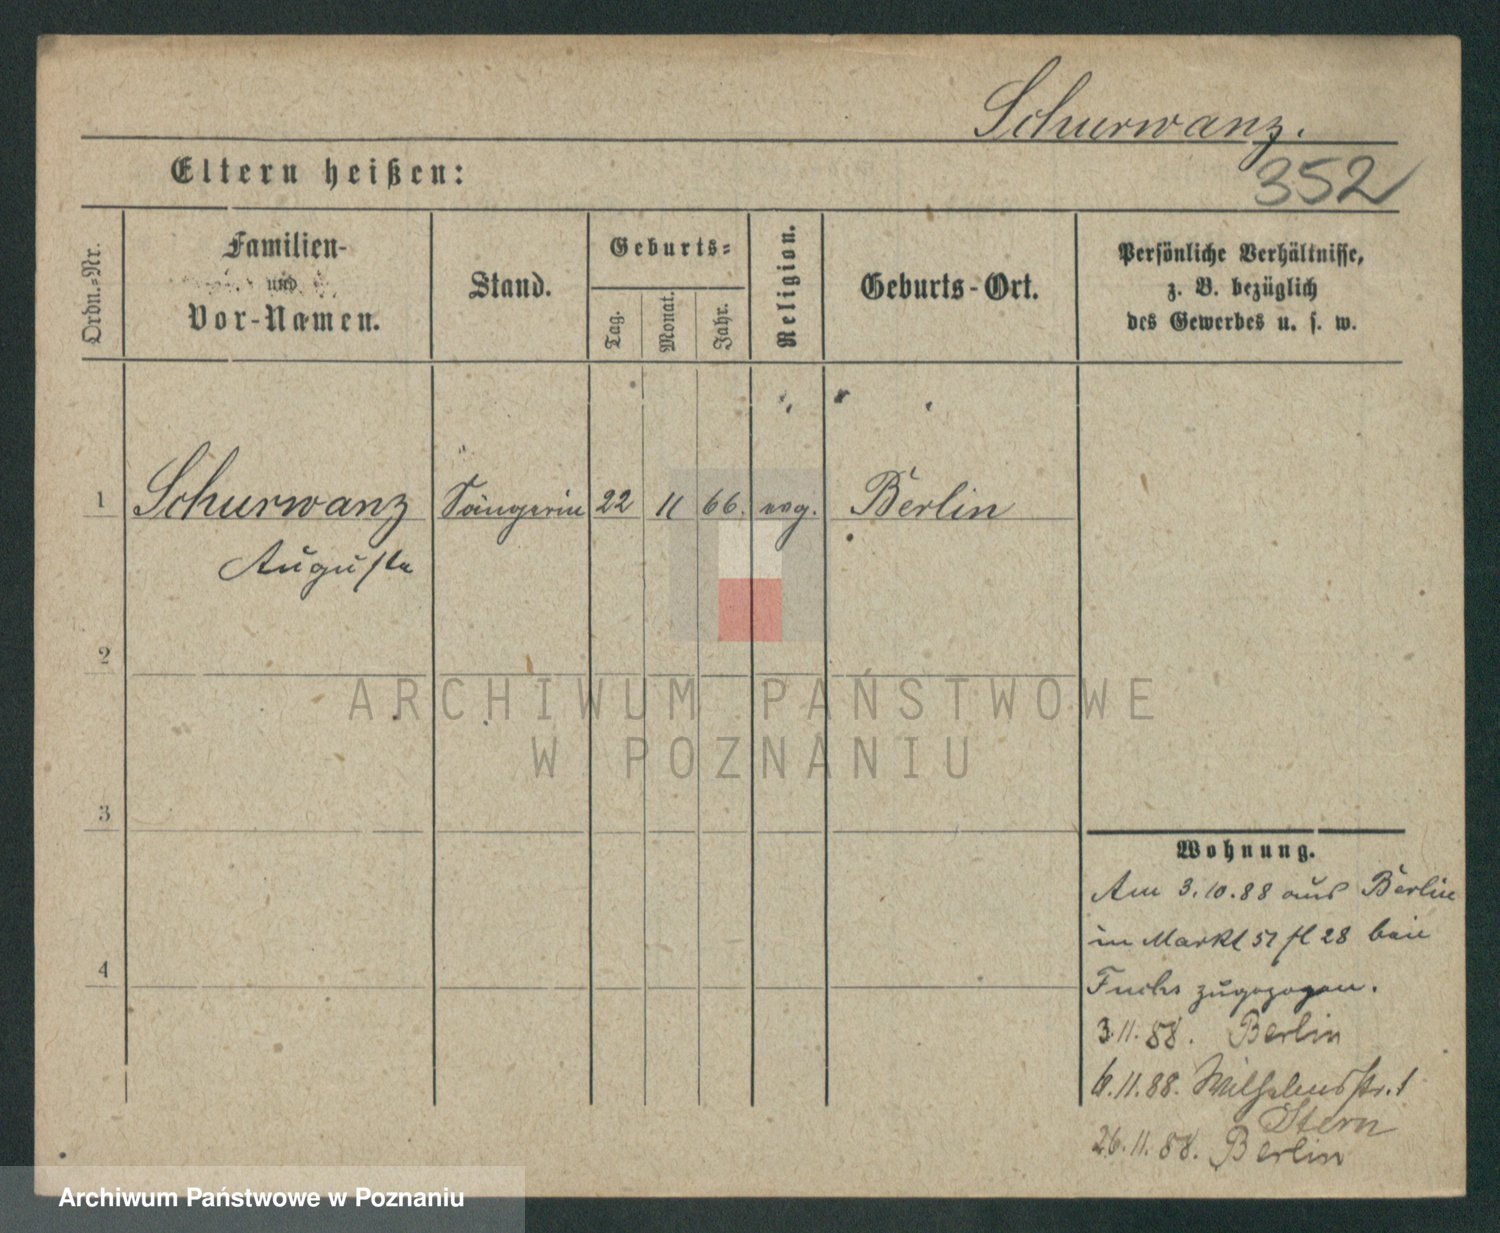 Schurwanz.
352
Eltern heißen:
Ordn.-Nr.
Familien-
und
Vor-Namen.
Stand.
Geburts-
Tag.
Monat.
Jahr.
Religion.
Geburts-Ort.
Persönliche Verhältnisse,
z. B. bezüglich
des Gewerbes u. s. w.
1 Schurwanz Sängerin 22 11 66. evg. Berlin
Auguste
2
3
4
ARCHIWUM PAŃSTWOWE
W POZNANIU
Wohnung.
Am 3.10.88 aus Berlin
in Markt 51 fl 28 bei
Fuchs zugezogen.
3.11.88. Berlin
6.11.88. Wilhelmstr. 1
Stern
26.11.88. Berlin
Archiwum Państwowe w Poznaniu